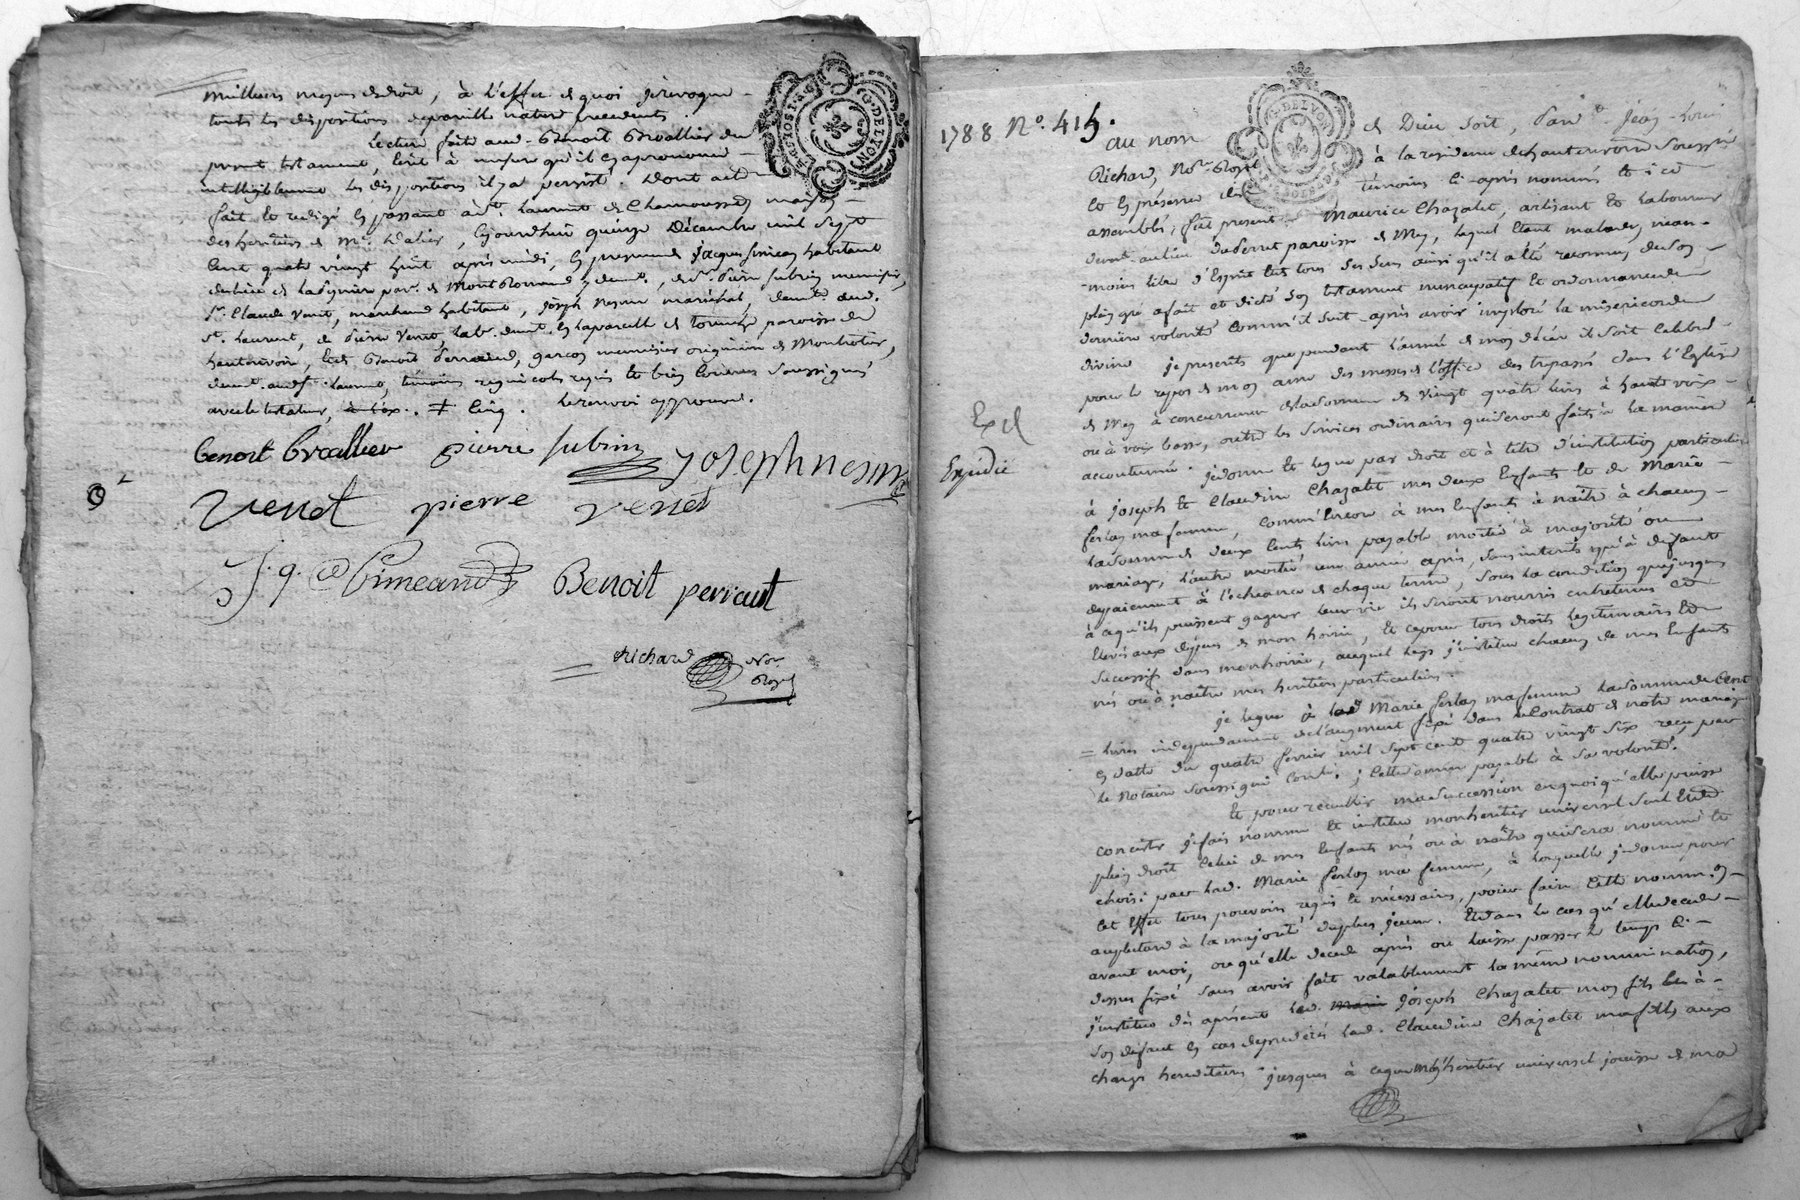 meilleurs moyens de droit, à l'effet de quoi je revoque
toutes les dispositions de pareille nature precedentes
Lecture faite aud. Benoit Broallier du
present testament, Ecrit à mesure qu'il en a prononcé
intelligiblement les dispositions il y a persisté. Dont acte
fait et redigé en passant à St. Laurent de Chamousset maison
des heritiers de Mr. , cejourdhui quinze Décembre mil sept
Cent quatre vingt huit après midi, en presence de Jacques Simean habitant
du lieu de par. de Montromand y demt., de Sr. pierre Subrin menuisier,
Sr. Claude Venet, marchand habitant, joseph nesme maréchal, demts. aud.
St. Laurent, de pierre Venet, lab. demt. en la parcelle de paroisse de
hauterivoire, Et de Benoit Perraud, garçon menuisier originaire de Montrotier,
demt. aud. St. Laurent, témoins requis et bien connus soussignés
avec le testateur, . ≠ Cinq. le renvoi approuvé.
benoit broallier pierre subrin joseph nesme
Venet pierre venet
J. q. Simeand Benoit perraut
Richard Nore.
Royal
1788 N°. 415.
au nom de Dieu soit, Pardt. Jean-Louis
Richard, Nore. Royal à la residence de hauterivoire soussigné
Et en présence des témoins ci-après nommés et ici
assemblés, fut present Maurice Chazalet, artisant et laboureur
demt. au lieu paroisse de Mey, lequel étant malade, nean-
-moins libre d'Esprit et de tous ses sens ainsi qu'il a été reconnu, de son
plein gré a fait et dicté son testament nuncupatif et ordonnance de
derniere volonté comm'il suit après avoir imploré la misericorde
divine je prescris que pendant l'année de mon décès il soit célébré
pour le repos de mon ame des messes de l'office des trepassés dans l'Eglise
de Mey à concurrence de la somme de vingt quatre livres à haute voix
ou à voix basse, outre les services ordinaires qui seront faits à la maniere
accoutumée. je donne et legue par droit et à titre d'institution particuliere
Exp
Expedié
à joseph et Claudine Chazalet mes deux Enfants et de Marie
ferlay ma femme, comm'Encore à mes Enfants à naître à chacun
la somme de deux cents livres payable moitié à majorité ou
mariage, l'autre moitié une année après, sans interets qu'à défaut
de paiement à l'échéance de chaque terme, sous la condition que jusques
à ce qu'ils puissent gagner leur vie ils seront nourris entretenus et
Elevés aux dépens de mon hoirie, et ce pour tous droits legitimaires et
successifs dans mon hoirie, auquel legs j'institue chacun de mes Enfants
nés ou à naître mes heritiers particuliers.
je legue à lad Marie ferlay ma femme la somme de Cent
= livres independament de l'augment fixé dans le Contrat de notre mariage
en datte du quatre fevrier mil sept cent quatre vingt six reçu par
le Notaire soussigné Controlé; Cette somme payable à sa volonté.
Et pour recueillir ma succession en quoi qu'elle puisse
consister je fais nomme et institue mon heritier universel seul et de
plein droit Celui de mes Enfants nés ou à naître qui sera nommé et
choisi par lad. Marie ferlay ma femme, à laquelle je donne pour
cet Effet tous pouvoirs requis et nécessaires, pour faire Cette nomin.on
au plutard à la majorité du plus jeune. Et dans le cas qu'elle decede
avant moi, ou qu'elle decede après ou laisse passer le temps ci-
dessus fixé sans avoir fait valablement la même nommination,
j'institue dès apresent led. Marie joseph Chazalet mon fils Et à
son défaut en cas de predécès lad. Claudine Chazalet ma fille aux
charges hereditaires jusques à ce que mon heritier universel jouisse de ma